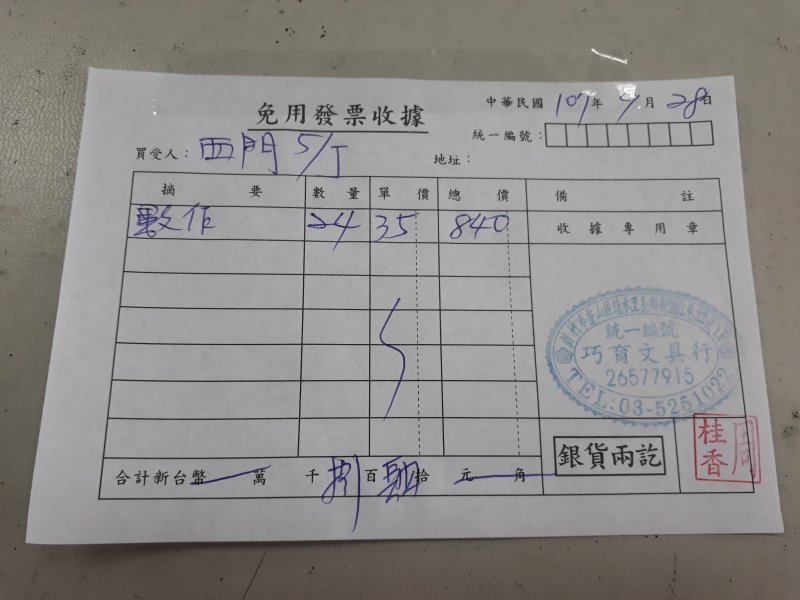 免用發票收據
中華民國 107年 9月 28日
統一編號：
買受人：西門 5/J
地址：
摘要 數量 單價 總價 備註
數作 24 35 840 收據專用章
統一編號
巧育文具行
26577915
TEL:03-5251022
合計新台幣 萬 千 捌 百 肆 拾 元 角
銀貨兩訖
周桂香